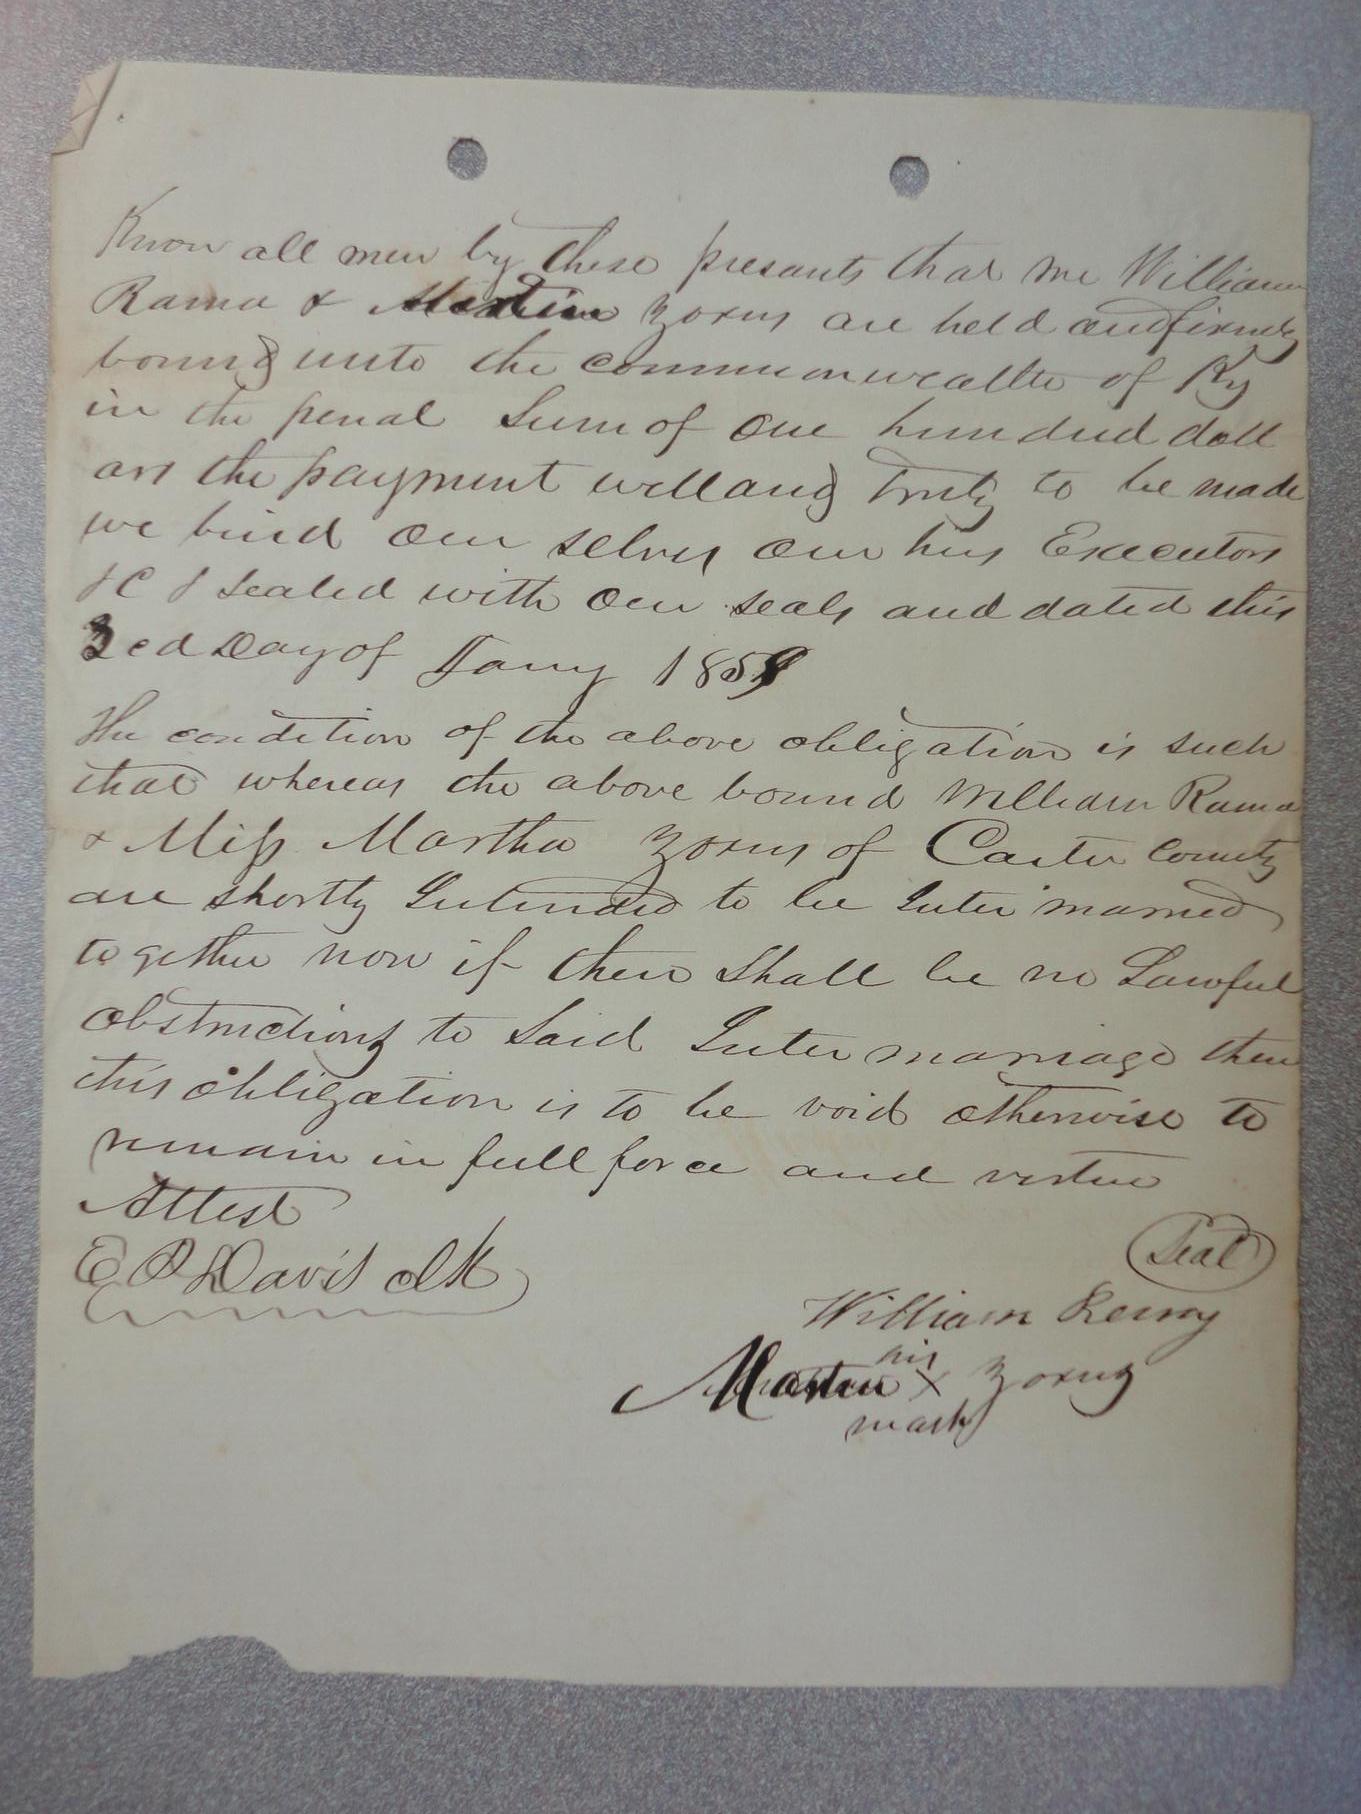 Know all men by these presants that we William
Rama & Martin Zorns are held and firmly
bound unto the commonwealth of Ky
in the penal Sum of one hundred doll
ars the payment well and Truly to be made
we bind our selvs our hirs Executors
&C & sealed with our seals and dated this
3ed Day of Jany 1859
The condition of the above obligation is such
that whereas the above bound William Rama
& Miss Martha Zorns of Carter County
are shortly Intended to be Inter married
to gether now if there Shall be no Lawful
obstructions to Said Inter marriage then
this obligation is to be void otherwise to
remain in full force and virtue
Attest
E P Davis clk
Seal
William
his
Martin X Zorns
mark